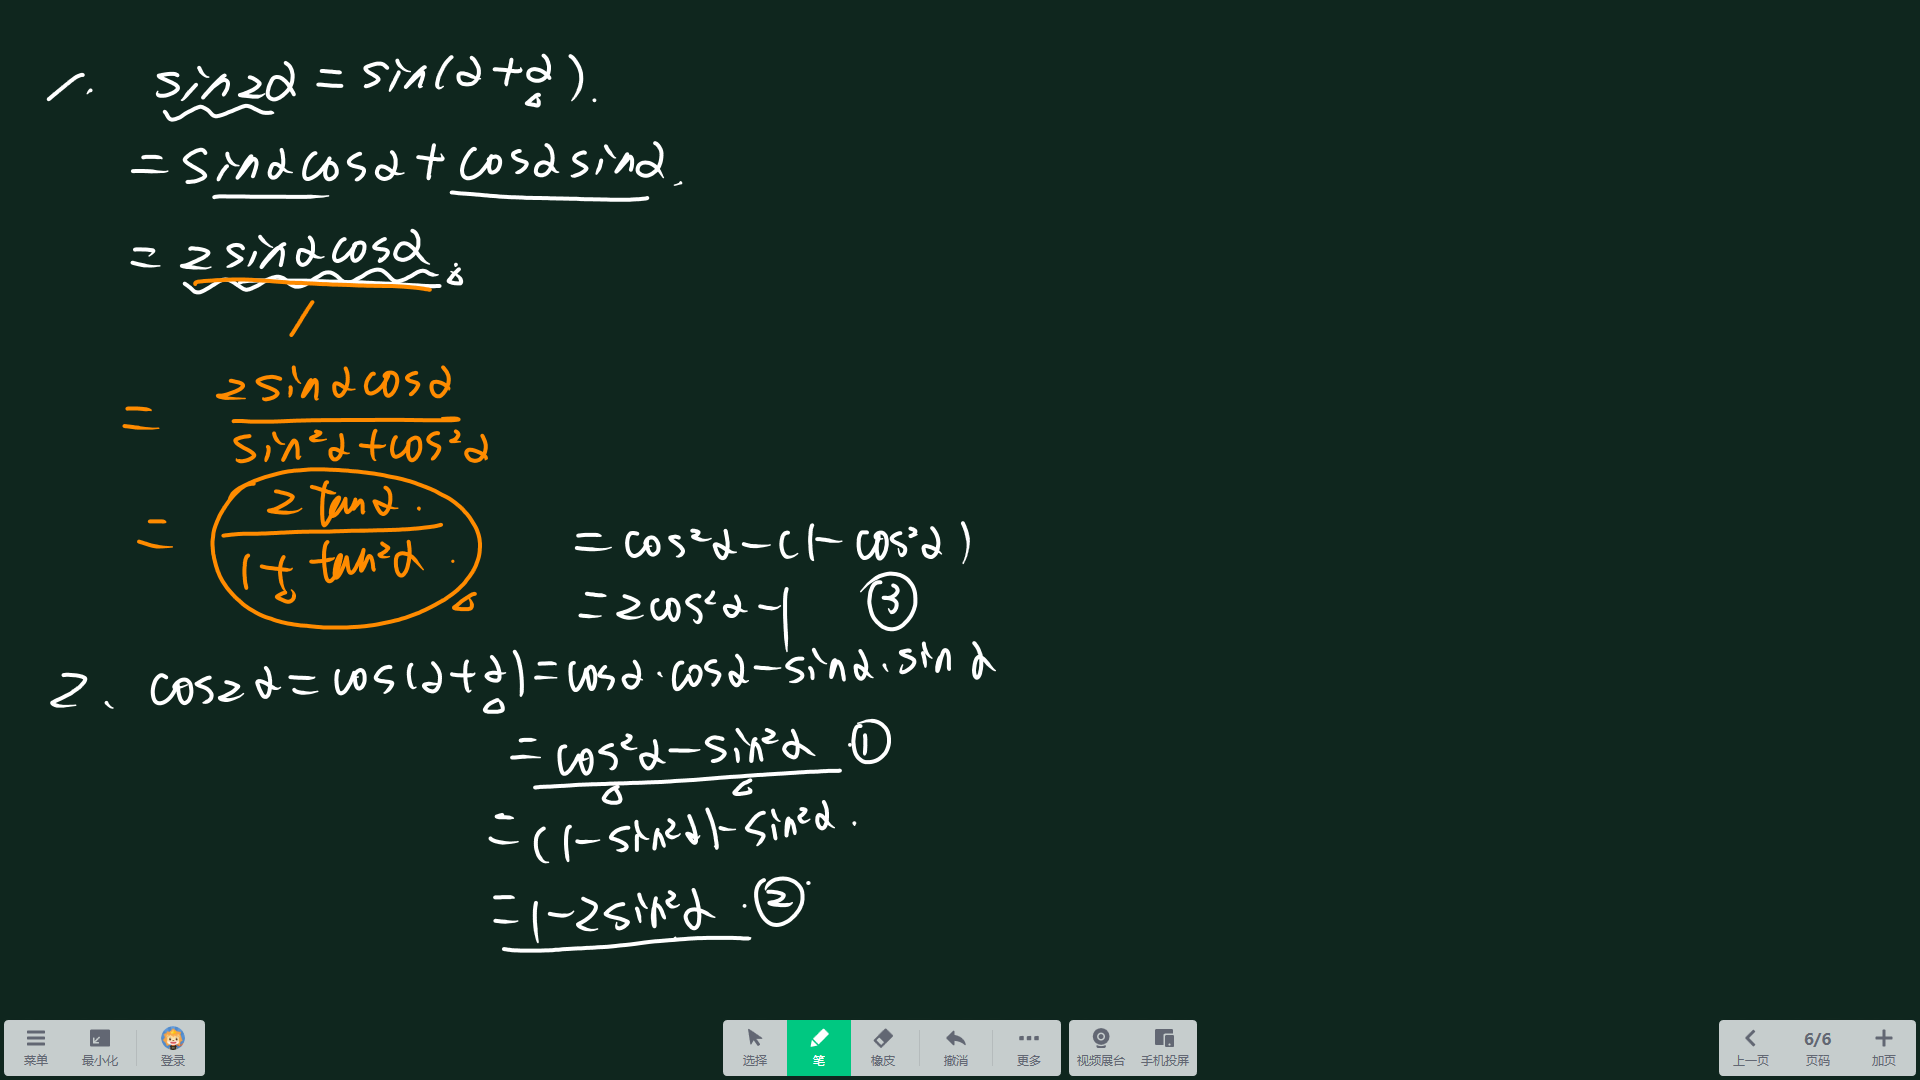 1. sin2α = sin(α+α).
= sinαcosα + cosαsinα.
= 2sinαcosα.
1
= 2sinαcosα / sin²α+cos²α
= 2tanα. / 1+tan²α.
= cos²α-(1-cos²α)
= 2cos²α-1 ③
2、cos2α = cos(α+α) = cosα·cosα-sinα·sinα
= cos²α-sin²α ①
= (1-sin²α)-sin²α.
= 1-2sin²α. ②
菜单 最小化 登录 选择 笔 橡皮 撤消 更多 视频展台 手机投屏 上一页 6/6 页码 加页